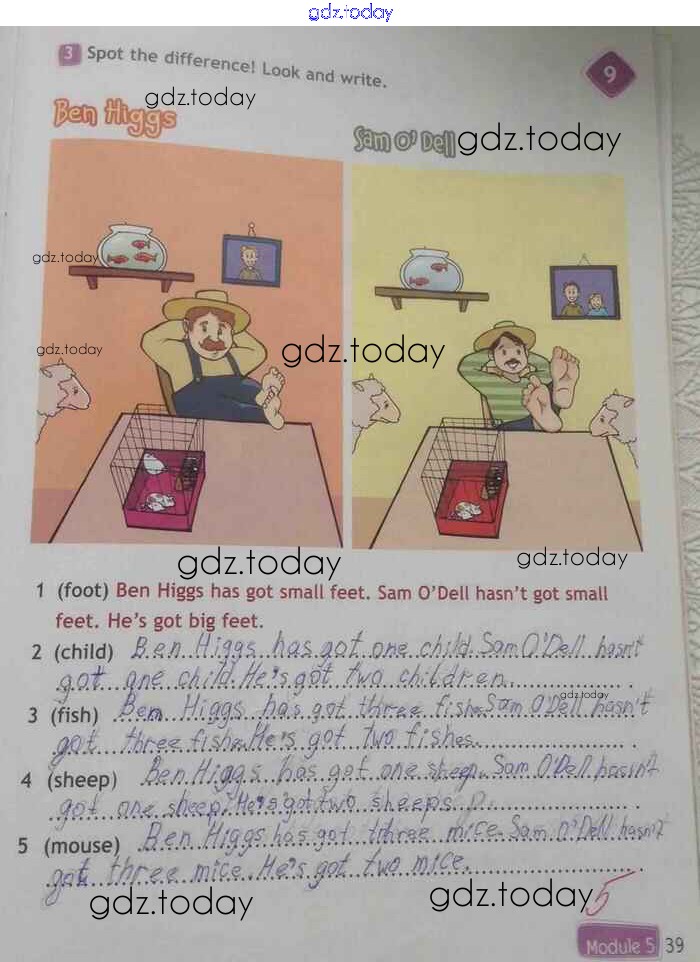 gdz.today
3 Spot the difference! Look and write.
9
gdz.today
Ben Higgs
Sam O'Dell
gdz.today
gdz.today
gdz.today
gdz.today
gdz.today
gdz.today
1 (foot) Ben Higgs has got small feet. Sam O'Dell hasn't got small
feet. He's got big feet.
2 (child) Ben Higgs has got one child. Sam O'Dell hasn't
got one child. He's got two children.
gdz.today
3 (fish) Ben Higgs has got three fishes. Sam O'Dell hasn't
got three fishes. He's got two fishes.
4 (sheep) Ben Higgs has got one sheep. Sam O'Dell hasn't
got one sheep. He's got two sheeps
5 (mouse) Ben Higgs has got three mice. Sam O'Dell hasn't
got three mice. He's got two mice.
gdz.today
gdz.today
5
Module 5 39